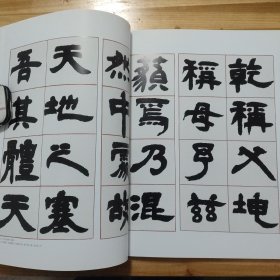 乾稱父坤
稱母予兹
藐焉乃混
然中處故
天地之塞
吾其體天